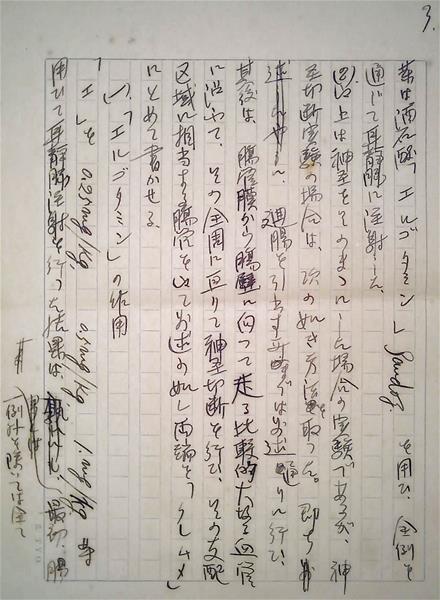 3.
薬は酒石酸「エルゴタミン」Sandoz を用ひ、全例を
通じて耳静脈に注射した。
以上は神経をそのまゝにした場合の実験であるが、神
経切断実験の場合は、次の如き方法を取つた。即ち
廻腸を引出すまでは前述通りに行ひ、
其後は、腸間膜から腸壁に向つて走る比較的大なる血管
に沿ひて、その全周に亘りて神経切断を行ひ、その支配
区域に相当する腸管を以て前述の如く両端を「クレムメ」
にとめて書かせる。
「エルゴタミン」の作用
「エ」を 0.25mg/kg 0.5mg/kg 1.mg/kg 等
用ひて耳静脈注射を行つた結果は、最初、腸
例外を除いては全て